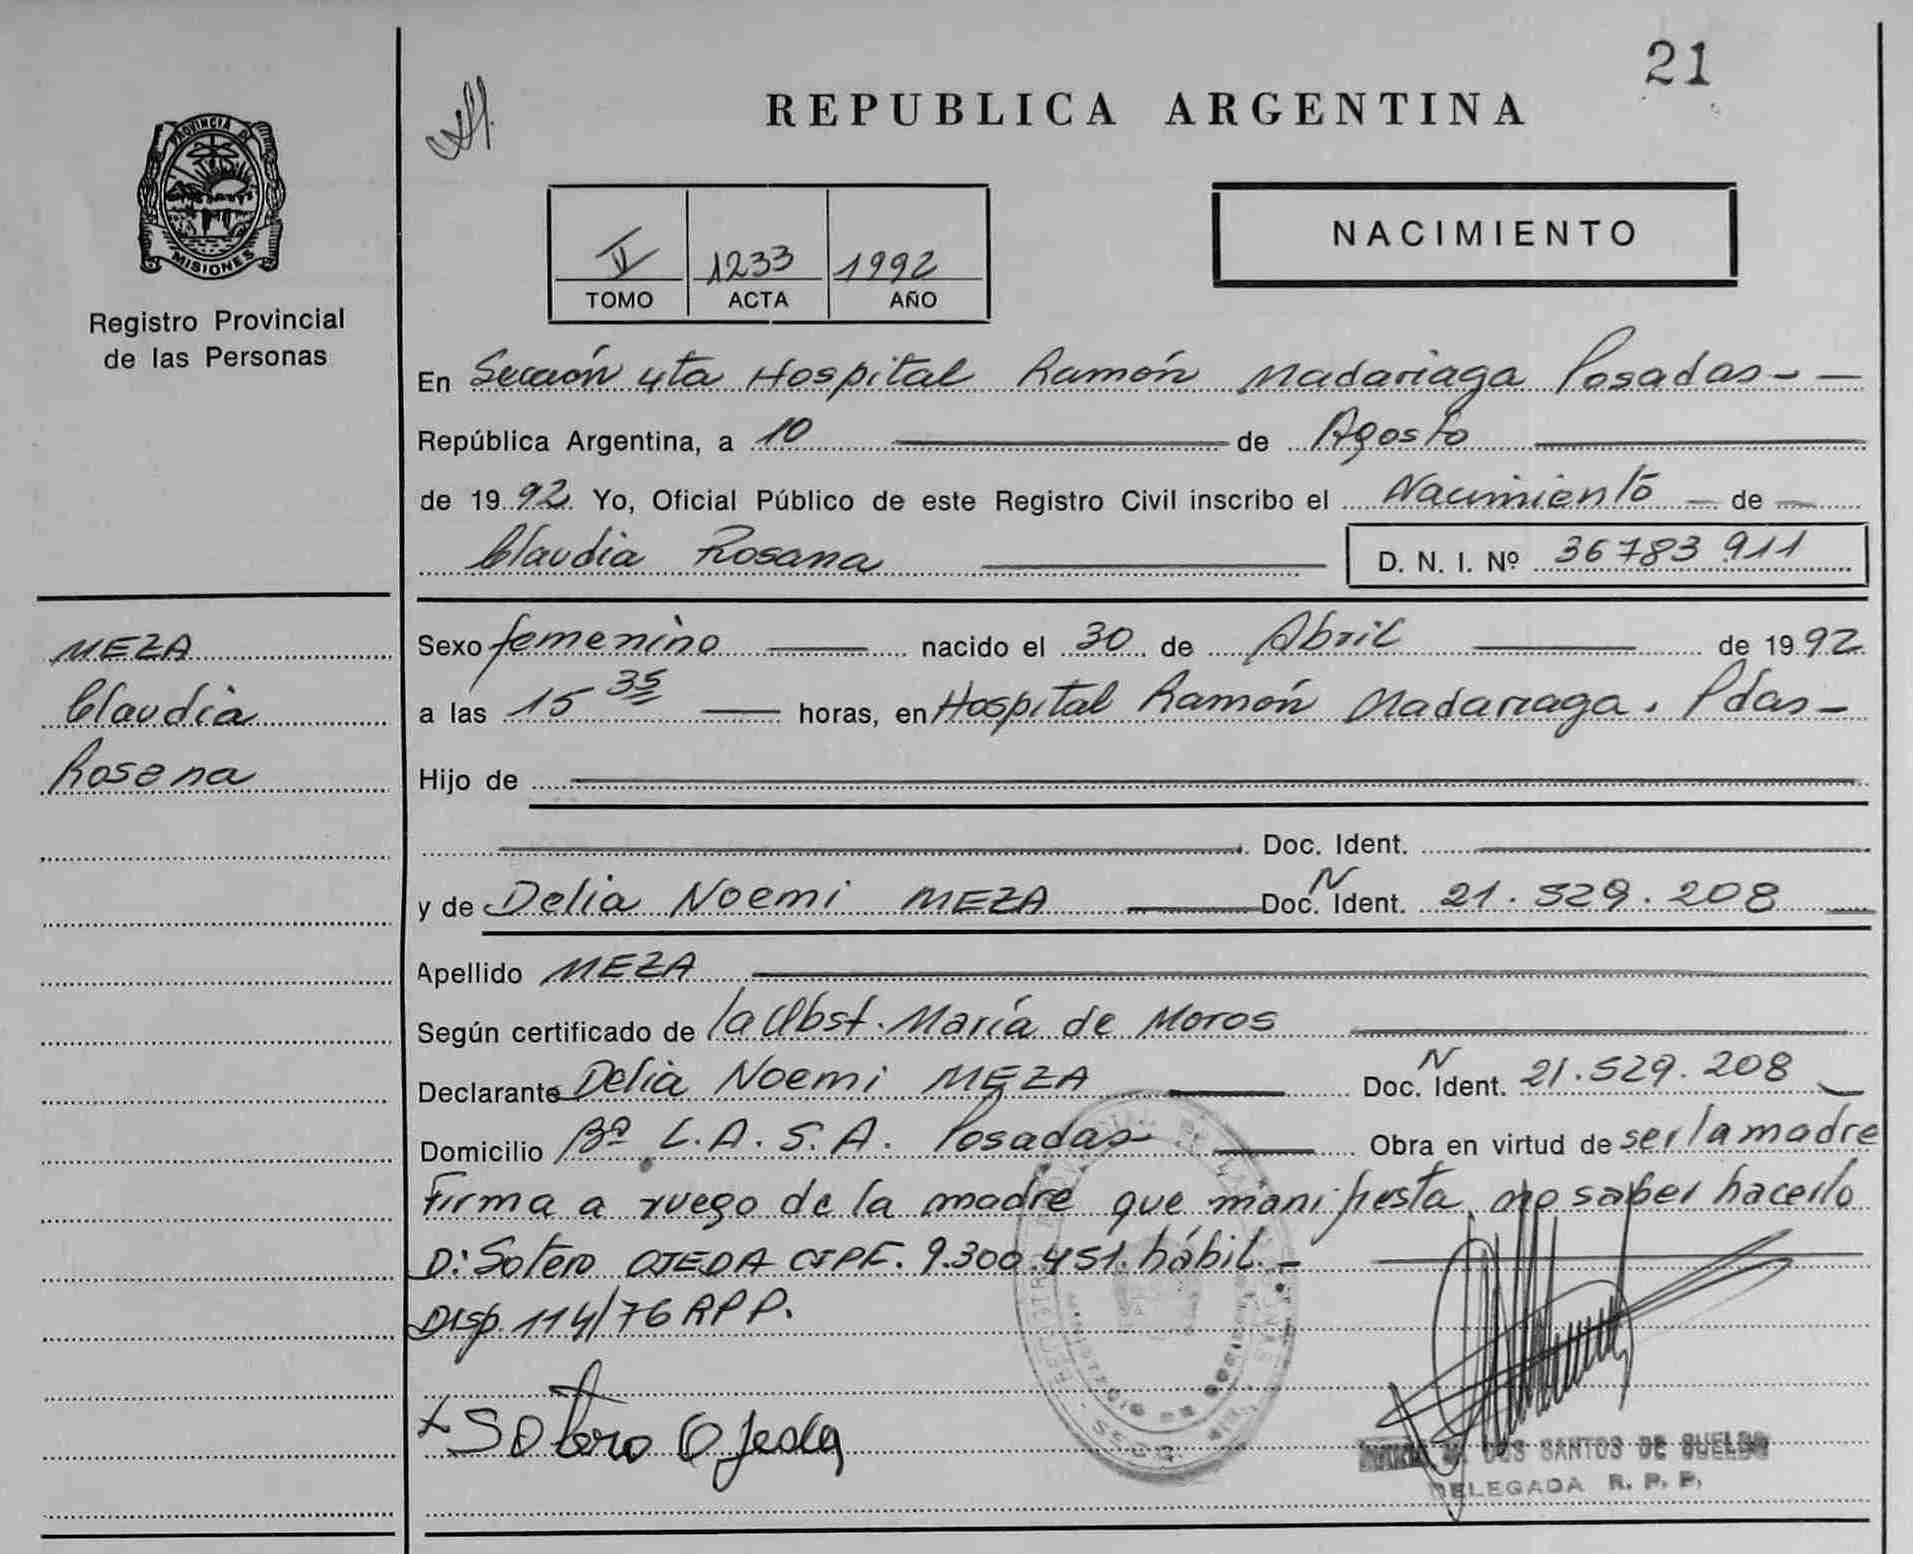 21
REPUBLICA ARGENTINA
PROVINCIA DE
MISIONES
NACIMIENTO
II 1233 1992
TOMO ACTA AÑO
Registro Provincial
de las Personas
En Sección 4ta Hospital Ramón Madariaga Posadas - -
República Argentina, a 10 de Agosto
de 1992 Yo, Oficial Público de este Registro Civil inscribo el Nacimiento - de -
Claudia Rosana D. N. I. Nº 36783911
MEZA
Claudia
Rosana
Sexo femenino nacido el 30 de Abril de 1992
a las 15 35 horas, en Hospital Ramón Madariaga. Pdas -
Hijo de
Doc. Ident.
y de Delia Noemi MEZA Doc. N Ident. 21.529.208
Apellido MEZA
Según certificado de la Obst. María de Moros
Declarante Delia Noemi MEZA Doc. N Ident. 21.529.208
Domicilio Bº L.A.S.A. Posadas Obra en virtud de ser la madre
Firma a ruego de la madre que manifiesta no saber hacerlo
D: Sotero OJEDA CIPF. 9.300.451. hábil. -
Disp. 114/76 RPP.
x Sotero Ojeda
DOS SANTOS DE SUELDO
DELEGADA R. P. P.